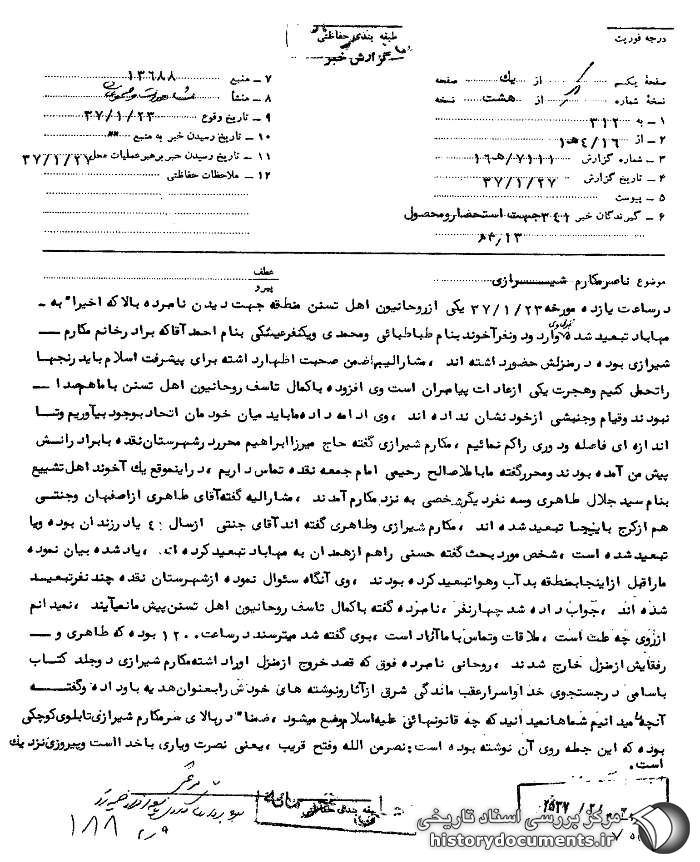 درجه فوریت
طبقه بندی حفاظتی
گزارش خبر
صفحهٔ یکم از یك صفحه
نسخهٔ شماره از هشت نسخه
۱ ـ به ۳۱۲
۲ ـ از ۴/۱۶هـ۱
۳ ـ شماره گزارش ۷۱۱۱/۱۶هـ
۴ ـ تاریخ گزارش ۳۷/۱/۲۷
۵ ـ پیوست
۶ ـ گیرندگان خبر ۳۴۱ جهت استحضار و محصول
۷ ـ منبع ۱۳۶۸۸
۸ ـ منشأ
۹ ـ تاریخ وقوع ۳۷/۱/۲۳
۱۰ ـ تاریخ رسیدن خبر به منبع ״״
۱۱ ـ تاریخ رسیدن خبر برهبر عملیات محل ۳۷/۱/۲۷
۱۲ ـ ملاحظات حفاظتی
موضوع ناصر مکارم شیـــرازی
عطف
پیرو
در ساعت یازده مورخه ۳۷/۱/۲۳ یکی از روحانیون اهل تسنن منطقه جهت دیدن نامبرده بالا که اخیرا" به ـ
مهاباد تبعید شده وارد و دو نفر آخوند بنام طباطبائی و محمدی و یکنفر عینکی بنام احمد آقا که برادر خانم مکارم ـ
شیرازی بوده در منزلش حضور داشته اند ، مشارالیه ضمن صحبت اظهار داشته برای پیشرفت اسلام باید رنجها
را تحمل کنیم و هجرت یکی از عادات پیامبران است وی افزوده با کمال تاسف روحانیون اهل تسنن با ما هم صدا ـ
نبودند و قیام و جنبشی از خود نشان نداده اند ، وی ادامه داده ما باید میان خودمان اتحاد بوجود بیآوریم و تا
اندازه ای فاصله و دوری را کم نمائیم ، مکارم شیرازی گفته حاج میرزا ابراهیم محرر در شهرستان نقده با برادرانش
پیش من آمده بودند و محرر گفته ما با ملا صالح رحیمی امام جمعه نقده تماس داریم ، در این موقع یك آخوند اهل تشییع
بنام سید جلال طاهری و سه نفر دیگر شخصی به نزد مکارم آمدند ، مشارالیه گفته آقای طاهری از اصفهان و جنتی
هم از کرج باینجا تبعید شده اند ، مکارم شیرازی و طاهری گفته اند آقای جنتی از سال ۴۰ یا در زندان بوده و یا
تبعید شده است ، شخص مورد بحث گفته حسنی را هم از همدان به مهاباد تبعید کرده اند ، یاد شده بیان نموده
ما را قبل از اینجا بمنطقه بد آب و هوا تبعید کرده بودند ، وی آنگاه سئوال نموده از شهرستان نقده چند نفر تبعیـد
شده اند ، جواب داده شد چهار نفر ، نامبرده گفته با کمال تاسف روحانیون اهل تسنن پیش ما نمیآیند ، نمیدانم
از روی چه علت است ، ملاقات و تماس با ما آزاد است ، بوی گفته شد میترسند در ساعت ۱۲۰۰ بوده که طاهری و ـ
رفقایش از منزل خارج شدند ، روحانی نامبرده فوق که قصد خروج از منزل او را داشته مکارم شیرازی دو جلد کتاب
باسامی در جستجوی خدا و اسرار عقب ماندگی شرق از آثار و نوشته های خودش را بعنوان هدیه باو داده و گفتـه
آنچه ما میدانیم شماها نمیدانید که چه قانونهائی علیه اسلام وضع میشود ، ضمنا" در بالای سر مکارم شیرازی تابلوی کوچکی
بوده که این جمله روی آن نوشته بوده است : نصر من الله و فتح قریب ، یعنی نصرت و یاری با خدا است و پیروزی نزدیك
است .
طبقه بندی حفاظتی
۱۸۸
مرکز بررسی اسناد تاریخی
historydocuments.ir